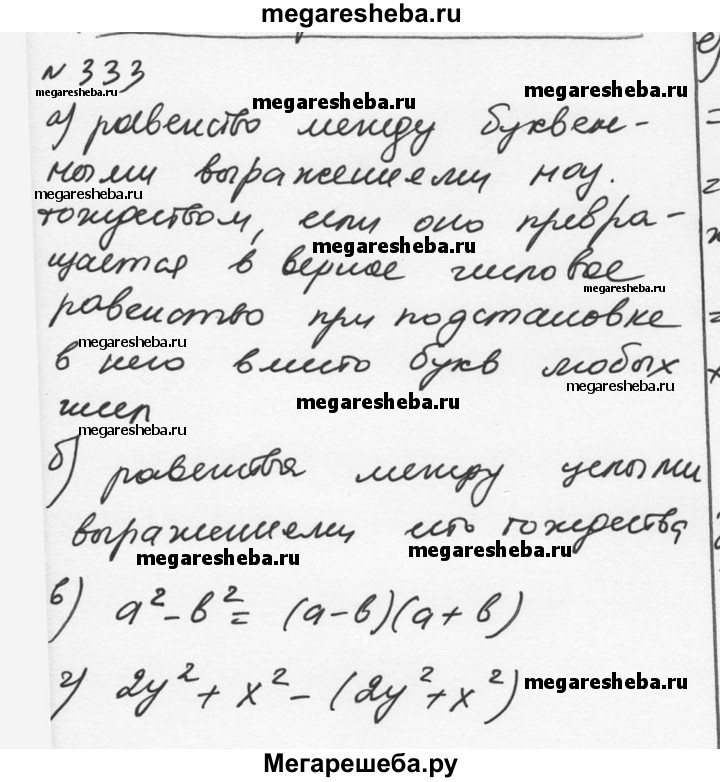 megaresheba.ru
№ 333
megaresheba.ru
megaresheba.ru
а) равенство между буквен-
ными выражениями наз.
megaresheba.ru
тождеством, если оно превра-
megaresheba.ru
щается в верное числовое
megaresheba.ru
равенство при подстановке
megaresheba.ru
в него вместо букв любых
megaresheba.ru
чисел
megaresheba.ru
megaresheba.ru
б) равенства между целыми
выражениями есть тождества
megaresheba.ru
megaresheba.ru
в) a² - b² = (a - b)(a + b)
г) 2y² + x² - (2y² + x²)
megaresheba.ru
Мегарешеба.ру